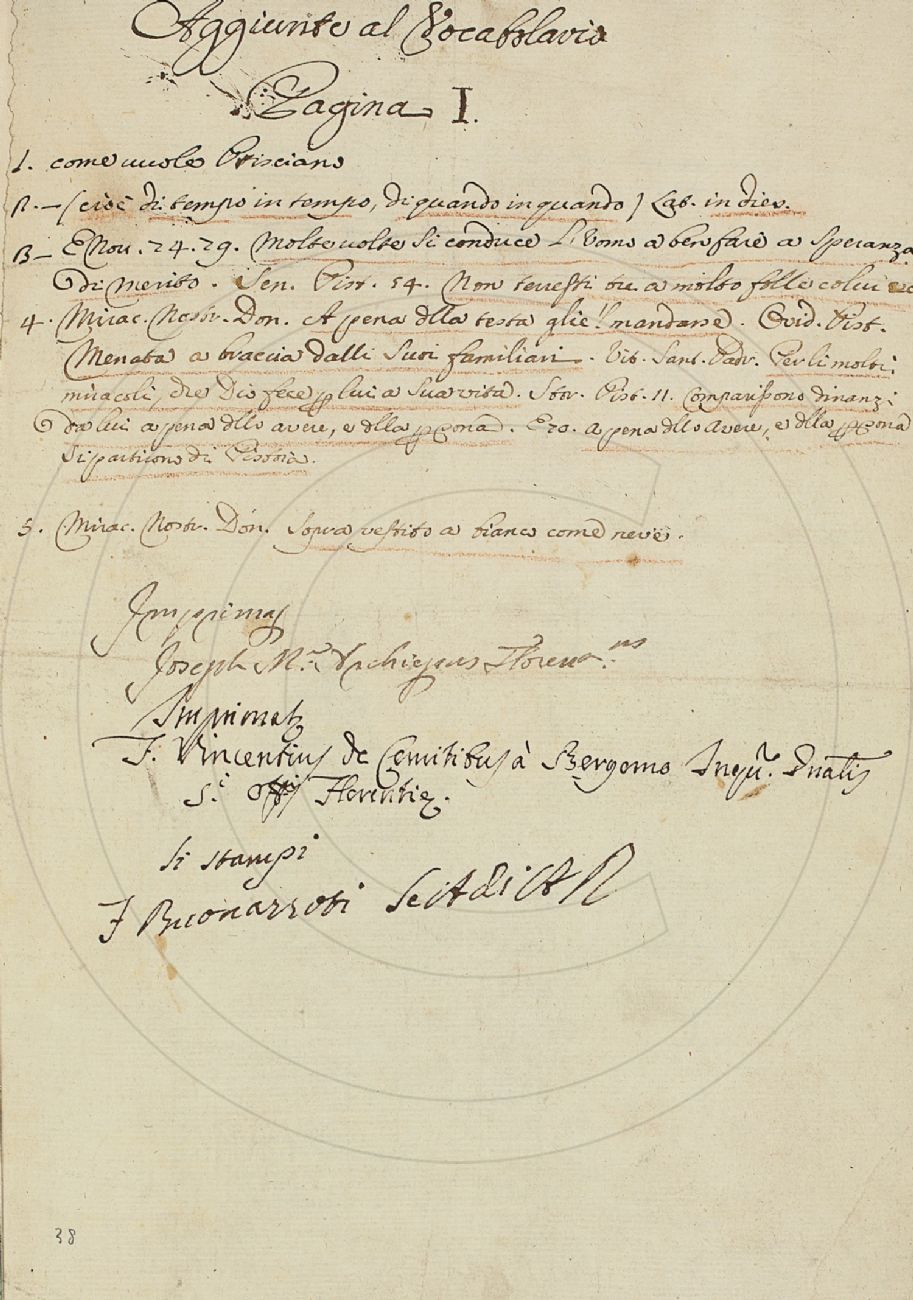 Aggiunte al Vocabolario
Pagina I.
1. come vuole Prisciano
2. — (cioè di tempo in tempo, di quando in quando) Lat. in dies.
3 — E Nov. 24.29. Molte volte si conduce L'Uomo a ben fare a speranza
di merito. Sen. Pist. 54. Non terresti tu a molto folle colui
4. Mirac. Nostr. Don. A pena dlla testa glie'l mandasse. Ovid. Pist.
Menata a braccia dalli suoi familiari. Vit. Sant. Padr. Per li molti
miracoli, che Dio fece p lui a sua vita. Stor. Pist. 11. Comparissono dinanzi
da lui a pena dllo avere, e dlla psona. E 20. a pena dllo avere, e dlla psona
si partirono di Pistoia.
5. Mirac. Nostr. Don. Sopra vestito a bianco come neve.
Imprimat
Joseph M.ª Florent.nus
Imprimatr
F. Vincentius de Comitibus à Bergomo Inqu.r Gnalis
S.i Offij Florentie.
Si stampi
F Buonarroti Se A di A R
38